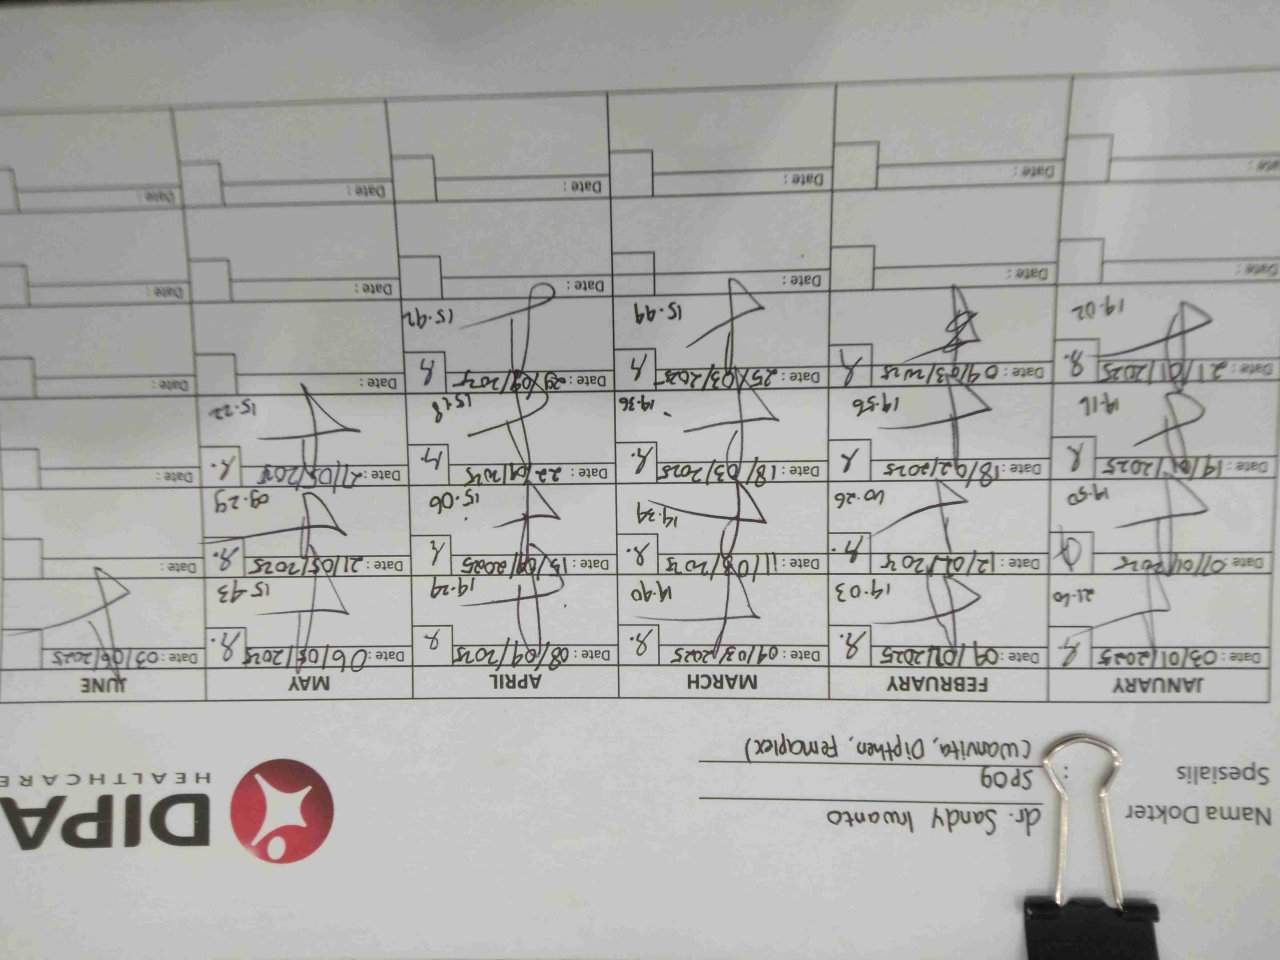 DIPA
HEALTHCARE
Nama Dokter dr. Sandy Irwanto
Spesialis : SPOG
(Wanvita, Dipthen, Femaplex)
JANUARY FEBRUARY MARCH APRIL MAY JUNE
Date: 03/01/2025 Date: 04/02/2025 Date: 04/03/2025 Date: 08/04/2025 Date: 06/05/2025 Date: 03/06/2025
14.03 14.40 14.29 15.43
Date: 07/01/2025 Date: 12/02/2025 Date: 11/03/2025 Date: 15/04/2025 Date: 21/05/2025 Date:
14.50 10.26 14.39 15.06 09.29
Date: 14/01/2025 Date: 18/02/2025 Date: 18/03/2025 Date: 22/04/2025 Date: 27/05/2025 Date:
14.16 14.56 14.36 15.18 15.22
Date: 21/01/2025 Date: 04/03/2025 Date: 25/03/2025 Date: 29/04/2025 Date: Date:
14.02 15.44 15.42
Date: Date: Date: Date: Date: Date:
Date: Date: Date: Date: Date: Date: